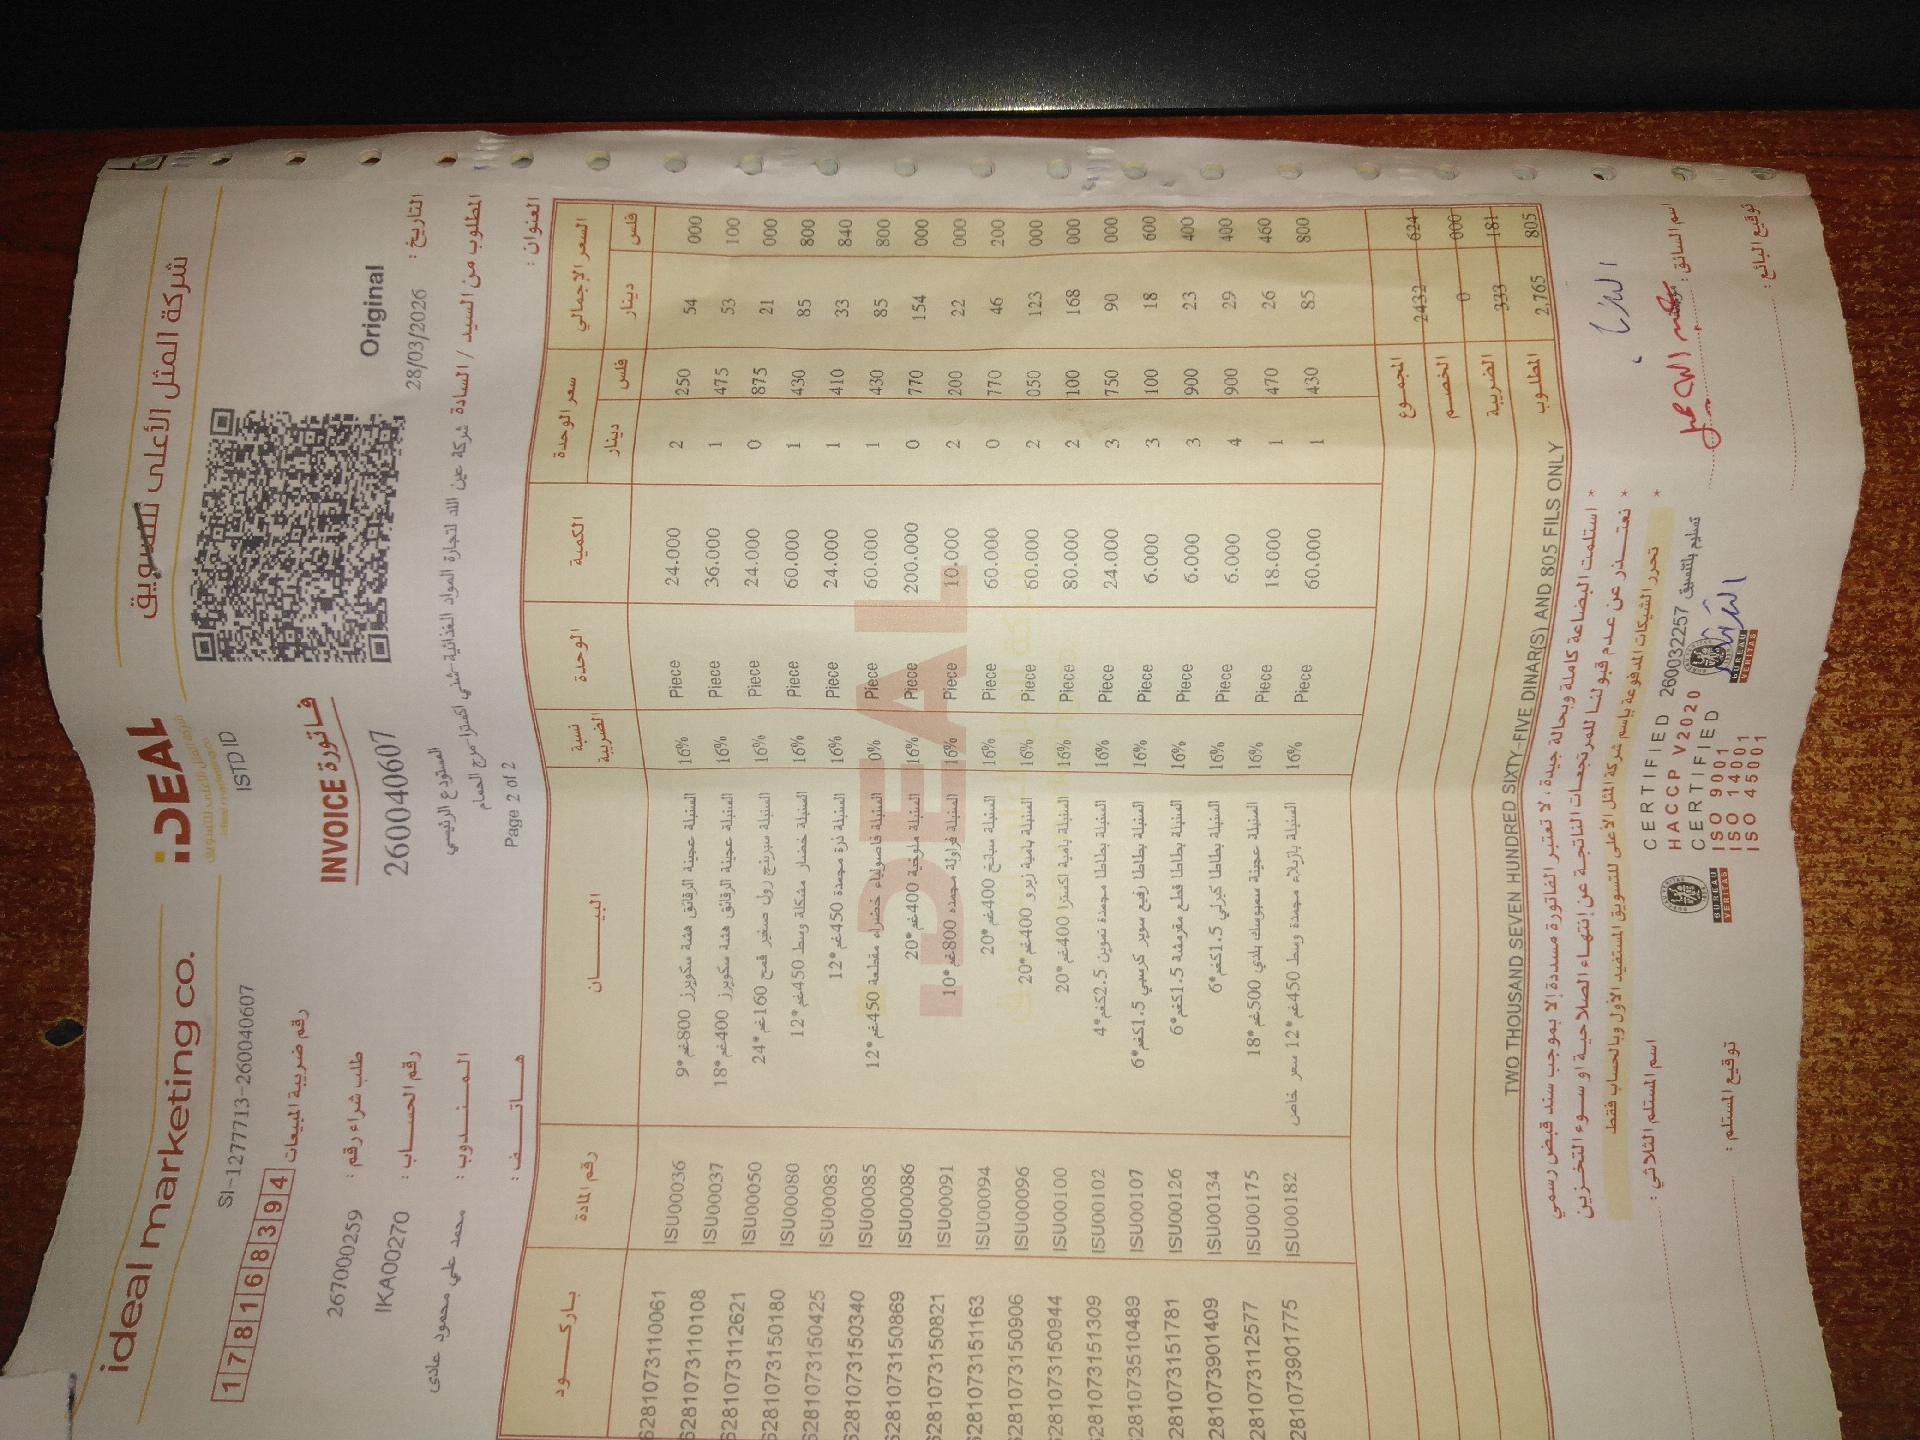 ideal marketing co.
iDEAL
شركة المثل الأعلى للتسويق
ideal marketing co.
شركة المثل الأعلى للتسويق
SI-12777713-260040607
ISTD ID
1 7 8 1 6 8 3 9 4
رقم ضريبة المبيعات
INVOICE فاتورة
Original
طلب شراء رقم : 267000259
260040607
التاريخ : 28/03/2026
رقم الحساب : IKA00270
المندوب : محمد علي محمود عادي
المطلوب من السيد / السادة شركة عين اللد لتجارة المواد الغذائية-شني اكسترا-مرج الحمام
المستودع الرئيسي
هاتف :
Page 2 of 2
العنوان :
باركود رقم المادة البيان نسبة الضريبة الوحدة الكمية سعر الوحدة السعر الإجمالي
دينار فلس دينار فلس
6281073110061 ISU00036 السنبلة عجينة الرقائق هشة سكويرز 800غم*9 16% Piece 24.000 2 250 54 000
6281073110108 ISU00037 السنبلة عجينة الرقائق هشة سكويرز 400غم*18 16% Piece 36.000 1 475 53 100
6281073112621 ISU00050 السنبلة سبرينج رول صغير قمح 160غم*24 16% Piece 24.000 0 875 21 000
6281073150180 ISU00080 السنبلة خضار مشكلة وسط 450غم*12 16% Piece 60.000 1 430 85 800
6281073150425 ISU00083 السنبلة ذرة مجمدة 450غم*12 16% Piece 24.000 1 410 33 840
6281073150340 ISU00085 السنبلة فاصولياء خضراء مقطعة 450غم*12 0% Piece 60.000 1 430 85 800
6281073150869 ISU00086 السنبلة ملوخية 400غم*20 16% Piece 200.000 0 770 154 000
6281073150821 ISU00091 السنبلة فراولة مجمده 800غم*10 16% Piece 10.000 2 200 22 000
6281073151163 ISU00094 السنبلة سبانخ 400غم*20 16% Piece 60.000 0 770 46 200
6281073150906 ISU00096 السنبلة بامية زيرو 400غم*20 16% Piece 60.000 2 050 123 000
6281073150944 ISU00100 السنبلة بامية اكسترا 400غم*20 16% Piece 80.000 2 100 168 000
6281073151309 ISU00102 السنبلة بطاطا مجمدة تموين 2.5كغم*4 16% Piece 24.000 3 750 90 000
6281073510489 ISU00107 السنبلة بطاطا رفيع سوبر كرسبي 1.5كغم*6 16% Piece 6.000 3 100 18 600
281073151781 ISU00126 السنبلة بطاطا قطع مقرمشة 1.5كغم*6 16% Piece 6.000 3 900 23 400
281073901409 ISU00134 السنبلة بطاطا كيرلي 1.5كغم*6 16% Piece 6.000 4 900 29 400
281073112577 ISU00175 السنبلة عجينة سمبوسك بلدي 500غم*18 16% Piece 18.000 1 470 26 460
281073901775 ISU00182 السنبلة بازيلاء مجمدة وسط 450غم*12 سعر خاص 16% Piece 60.000 1 430 85 800
iDEAL
المجموع 2432 624
الخصم 0 000
الضريبة 333 181
المطلوب 2,765 805
TWO THOUSAND SEVEN HUNDRED SIXTY-FIVE DINAR(S) AND 805 FILS ONLY
* استلمت البضاعة كاملة وبحالة جيدة، لا تعتبر الفاتورة مسددة إلا بموجب سند قبض رسمي
* نعتذر عن عدم قبولنا للمرتجعات الناتجة عن إنتهاء الصلاحية او سوء التخزين
* تحرر الشيكات المدفوعة بإسم شركة المثل الأعلى للتسويق المستفيد الأول وبالحساب فقط
اسم المستلم الثلاثي :
توقيع المستلم :
CERTIFIED
HACCP V2020
CERTIFIED
ISO 9001
ISO 14001
ISO 45001
BUREAU VERITAS
BUREAU VERITAS
260032257
اسم السائق :
توقيع البائع :